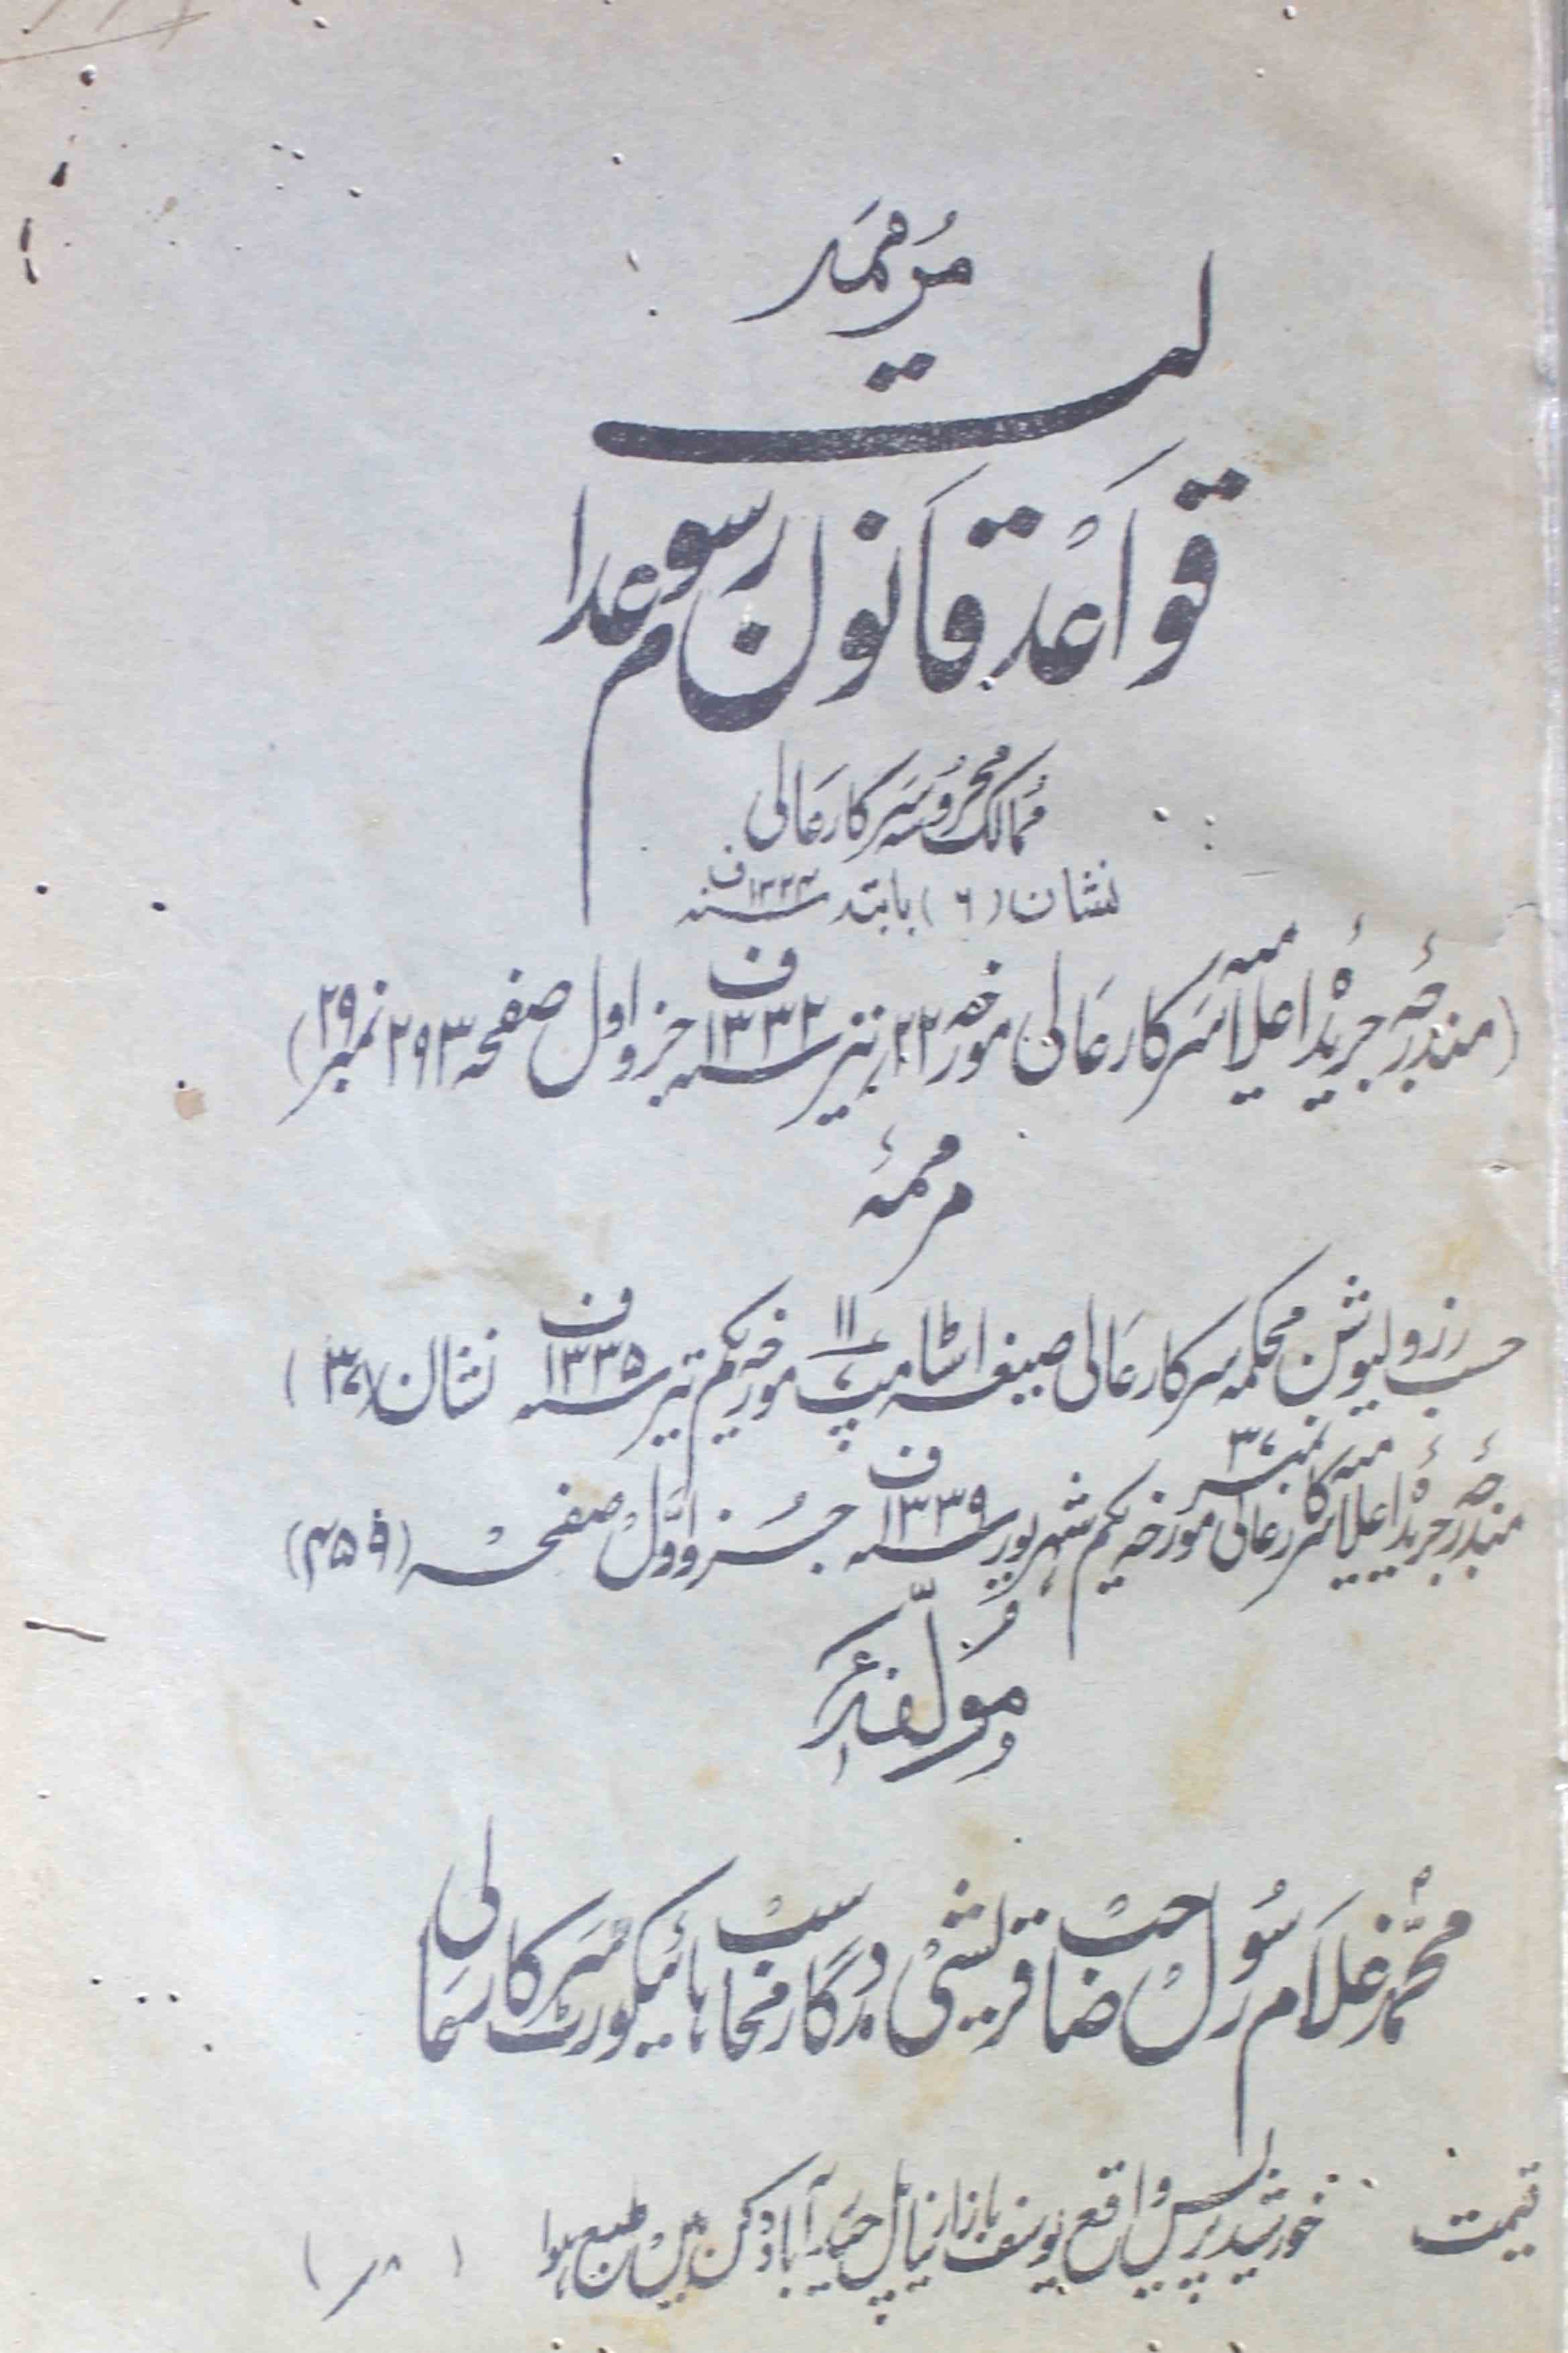 مرممہ
قواعد قانون رسوم عدالت
ممالک محروسہ سرکار عالی
نشان (۶) بابتہ سنہ ۱۳۲۴ ف
(مندرجۂ جریدۂ اعلامیہ سرکار عالی مورخہ ۲۲ تیر سنہ ۱۳۳۲ ف جزو اول صفحہ ۲۹۳ نمبر ۲۹)
مرممۂ
حسب رزولیوشن محکمہ سرکار عالی صیغہ اسٹامپ مورخہ یکم تیر سنہ ۱۳۳۵ ف نشان
مندرجۂ جریدۂ اعلامیہ سرکار عالی نمبر مورخہ یکم شہریور سنہ ۱۳۳۹ ف جزو اول صفحہ (۴۵۹)
مولفہ
محمد غلام رسول صاحب قریشی مددگار محاسب ہائیکورٹ سرکار عالی
قیمت خورشید پریس واقع یوسف بازار نیا پل حیدرآباد دکن میں طبع ہوا (۸ر)